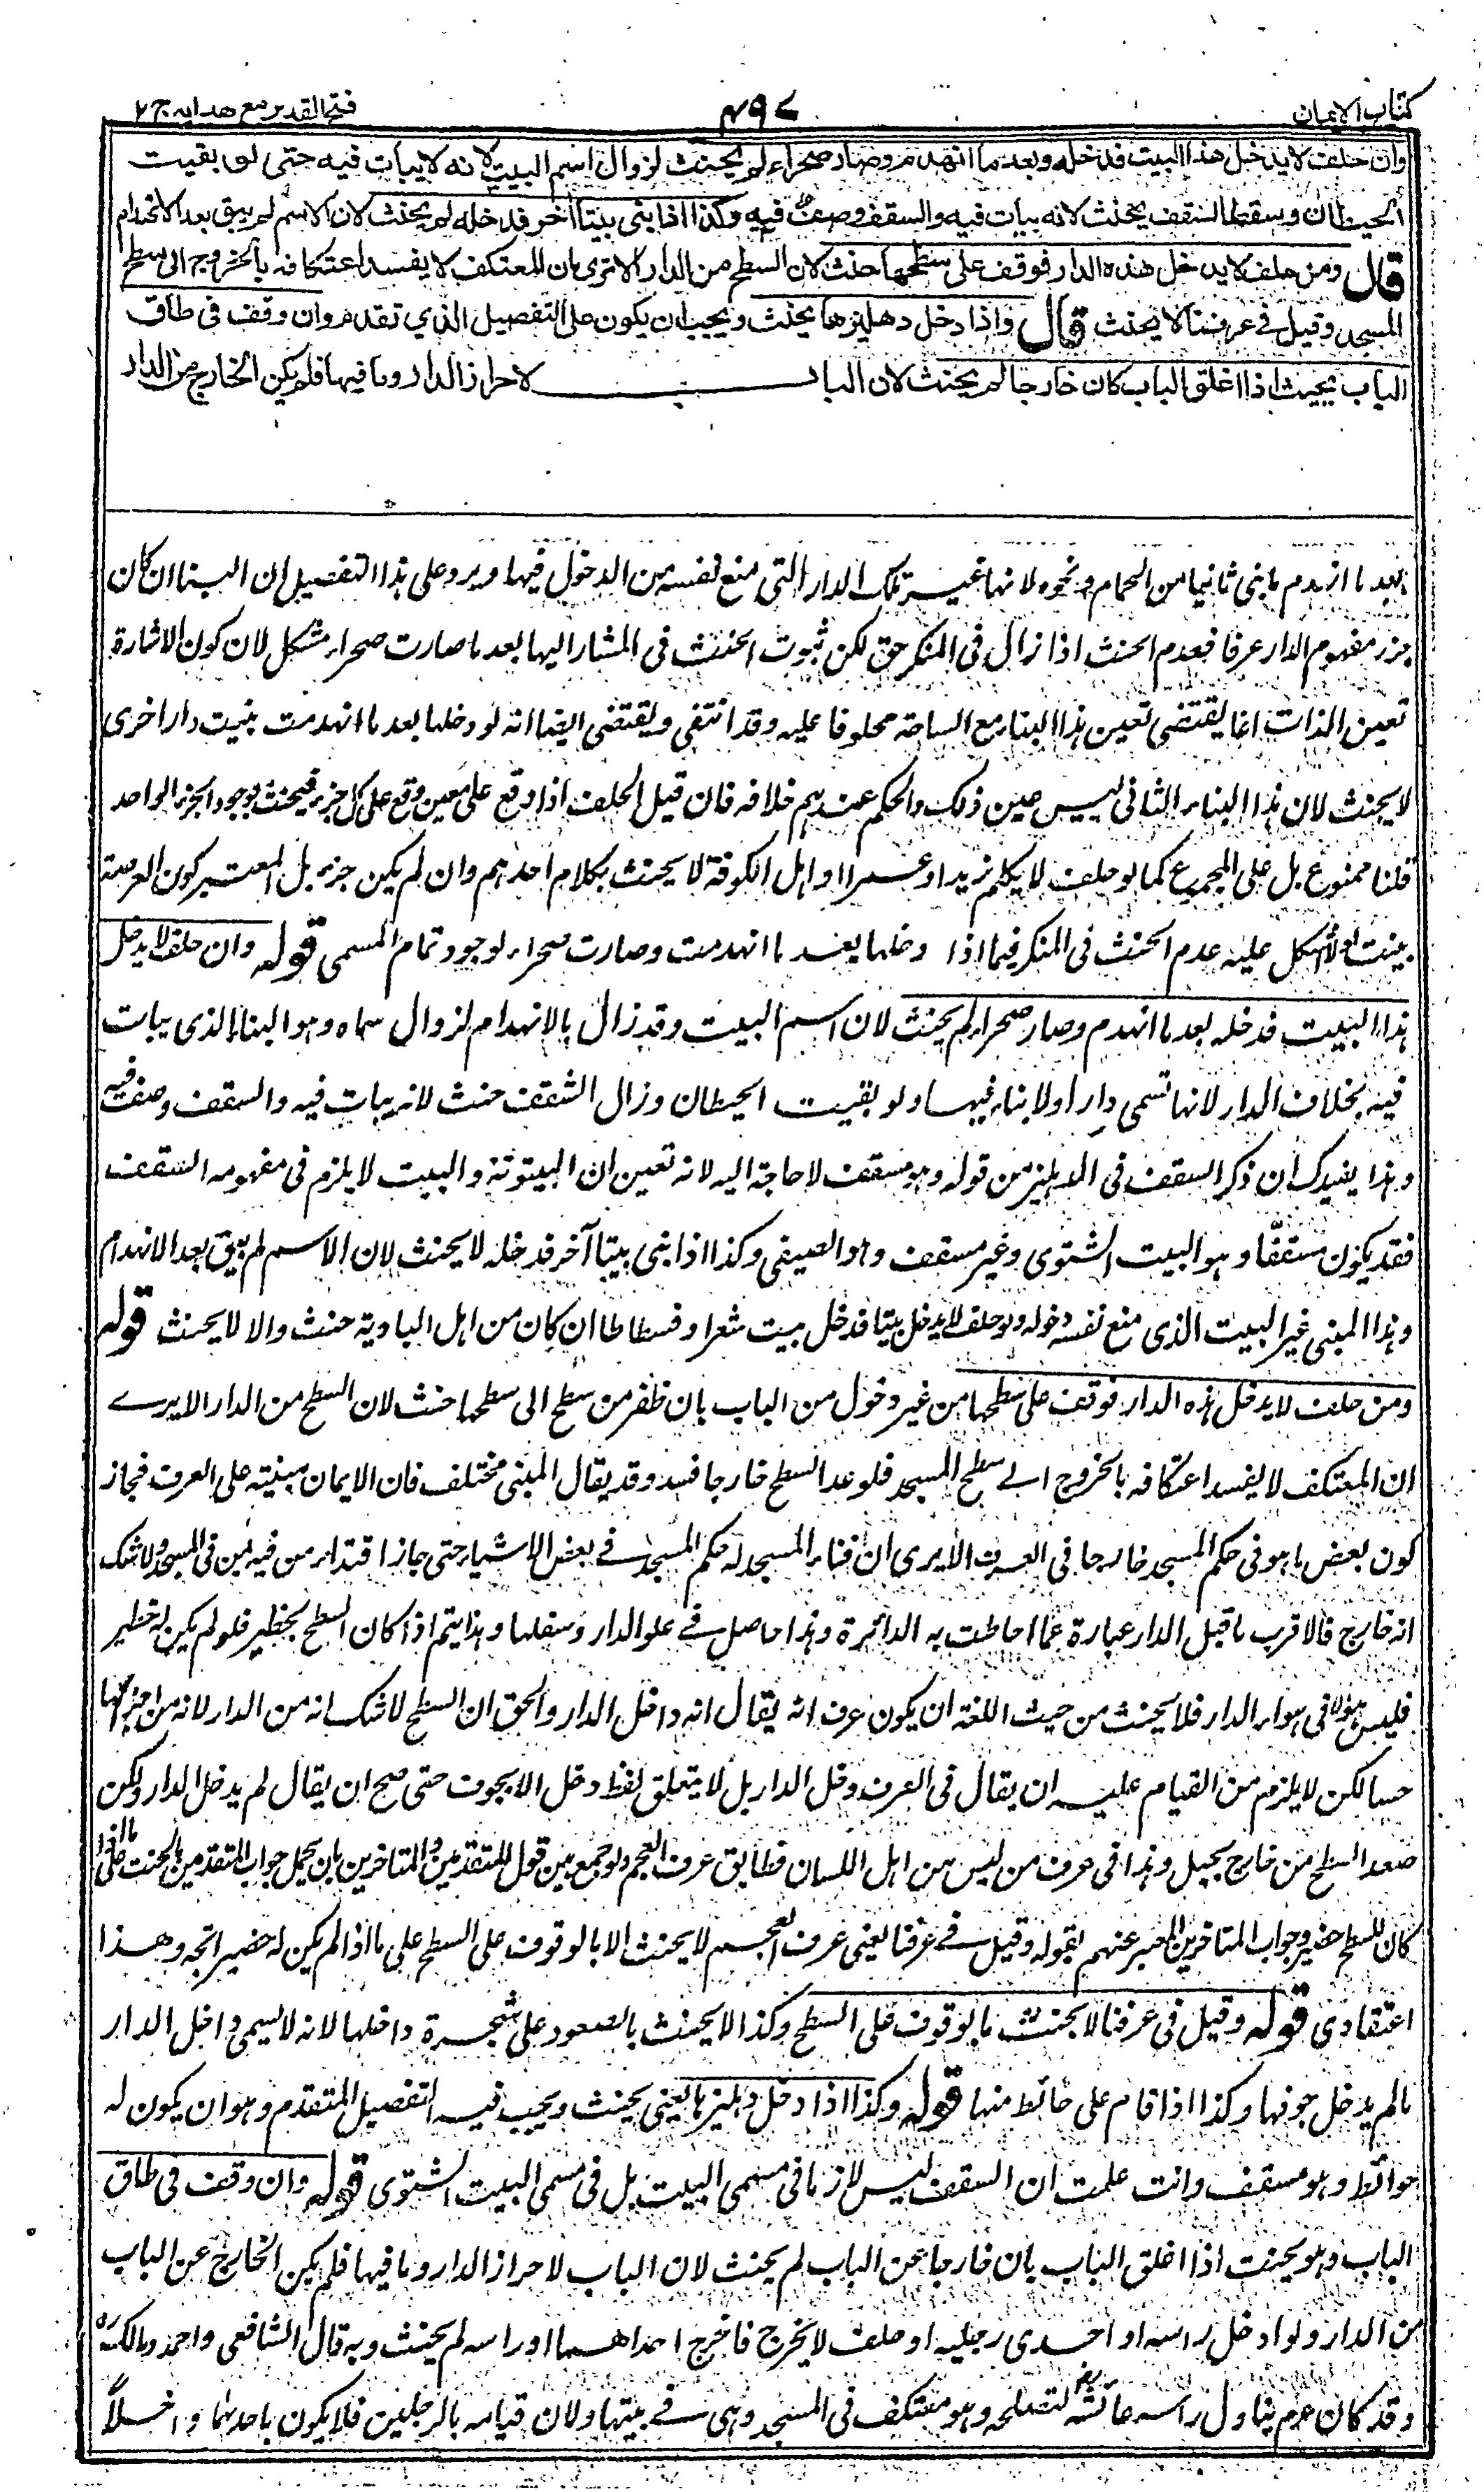 كتاب الايمان
٤٩٧
فتح القدير مع هدايه ج ٢
وان حلف لا يدخل هذا البيت فدخله وبعد ما انهدم وصار صحراء لم يحنث لزوال اسم البيت لانه لا يبات فيه حتى لو بقيت
الحيطان وسقط السقف يحنث لانه يبات فيه والسقف وصف فيه وكذا اذا بنى بيتا اخر فدخله لم يحنث لان الاسم لم يبق بعد الانهدام
قال ومن حلف لا يدخل هذه الدار فوقف على سطحها حنث لان السطح من الدار الا ترى ان المعتكف لا يفسد اعتكافه بالخروج الى سطح
المسجد وقيل في عرفنا لا يحنث قال واذا دخل دهليزها يحنث ويجب ان يكون على التفصيل الذي تقدم وان وقف في طاق
الباب بحيث اذا اغلق الباب كان خارجا لم يحنث لان الباب لاحراز الدار وما فيها فلم يكن الخارج من الدار
بعد ما انهدم ما بنى ثانيا من الحمام ونحوه لانها غير تلك الدار التى منع نفسه من الدخول فيها ويرد على هذا التفصيل ان البنا ان كان
جزء مفهوم الدار عرفا فعدم الحنث اذا زال فى المنكر حق لكن ثبوت الحنث فى المشار اليها بعد ما صارت صحراء مشكل لان كون الاشارة
تعين الذات انما يقتضى تعين هذا البناء مع الساحة محلوفا عليه وقد انتفى ويقتضى ايضا انه لو دخلها بعد ما انهدمت بنيت دارا اخرى
لا يحنث لان هذا البناء الثانى ليس عين ذلك والحكم عندهم خلافه فان قيل الحلف اذا وقع على معين وقع على كل جزء فيحنث بوجود الجزء الواحد
قلنا ممنوع بل على المجموع كما لو حلف لا يكلم زيدا وعمرا او اهل الكوفة لا يحنث بكلام احدهم وان لم يكن جزء بل المعتبر كون العرصة
بنيت اولا اشكل عليه عدم الحنث فى المنكر فيما اذا دخلها بعد ما انهدمت وصارت صحراء لوجود تمام المسمى قوله وان حلف لا يدخل
هذا البيت فدخله بعد ما انهدم وصار صحراء لم يحنث لان اسم البيت وقد زال بالانهدام لزوال مسماه وهو البناء الذى يبات
فيه بخلاف الدار لانها تسمى دارا ولا بناء فيها ولو بقيت الحيطان وزال السقف حنث لانه يبات فيه والسقف وصف فيه
وهذا يفيدك ان ذكر السقف فى الدهليز من قوله وهو مسقف لا حاجة اليه لانه تعين ان البيتوتة والبيت لا يلزم فى مفهومه السقف
فقد يكون مسقفا وهو البيت الشتوى وغير مسقف وهو الصيفى وكذا اذا بنى بيتا آخر فدخله لا يحنث لان الاسم لم يبق بعد الانهدام
وهذا المبنى غير البيت الذى منع نفسه دخوله ولو حلف لا يدخل بيتا فدخل بيت شعر او فسطاطا ان كان من اهل البادية حنث والا لا يحنث قوله
ومن حلف لا يدخل هذه الدار فوقف على سطحها من غير دخول من الباب بان ظفر من سطح الى سطحها حنث لان السطح من الدار الا يرے
ان المعتكف لا يفسد اعتكافه بالخروج الے سطح المسجد فلو عد السطح خارجا فسد وقد يقال المبنى مختلف فان الايمان مبنية على العرف فجاز
كون بعض ما هو فى حكم المسجد خارجا فى العرف الا يرى ان فناء المسجد له حكم المسجد فے بعض الاشياء حتى جاز اقتداء من فيه بمن فى المسجد ولا شك
انه خارج فالاقرب ما قيل الدار عبارة عما احاطت به الدائرة وهذا حاصل فے علو الدار وسفلها وهذا يتم اذا كان السطح بحظير فلو لم يكن له حظير
فليس هو الا فى هواء الدار فلا يحنث من حيث اللغة الا ان يكون عرف انه يقال انه داخل الدار والحق ان السطح لا شك انه من الدار لانه من اجزائها
حسا لكن لا يلزم من القيام عليه ان يقال فى العرف دخل الدار بل لا يتعلق لفظ دخل الا بجوف حتى صح ان يقال لم يدخل الدار ولكن
صعد السطح من خارج بحبل وهذا فى عرف من ليس من اهل اللسان فطابق عرف العجم ولو جمع بين قول المتقدمين والمتاخرين بان يحمل جواب المتقدمين بالحنث على ما اذا
كان للسطح حضير وجواب المتاخرين المعبر عنهم بقوله وقيل فے عرفنا يعنى عرف العجم لا يحنث الا بالوقوف على السطح على ما اذا لم يكن له حضير اتجه وهذا
اعتقادى قوله وقيل فى عرفنا لا يحنث بالوقوف على السطح وكذا لا يحنث بالصعود على شجرة داخلها لانه لا يسمى داخل الدار
ما لم يدخل جوفها وكذا اذا قام على حائط منها قوله وكذا اذا دخل دهليزها يعنى يحنث ويجب فيه التفصيل المتقدم وهو ان يكون له
حوائط وهو مسقف وانت علمت ان السقف ليس لازما فى مسمى البيت بل فى مسمى البيت الشتوى قوله وان وقف فى طاق
الباب وهو بحيث اذا اغلق الباب كان خارجا عن الباب لم يحنث لان الباب لاحراز الدار وما فيها فلم يكن الخارج عن الباب
من الدار ولو ادخل راسه او احدى رجليه او حلف لا يخرج فاخرج احداهما او راسه لم يحنث وبه قال الشافعى واحمد ومالك رہ
وقد كان عم يناول راسه عائشة رض لتصلحه وهو معتكف فى المسجد وهى فے بيتها ولان قيامه بالرجلين فلا يكون باحدىهما داخلاً